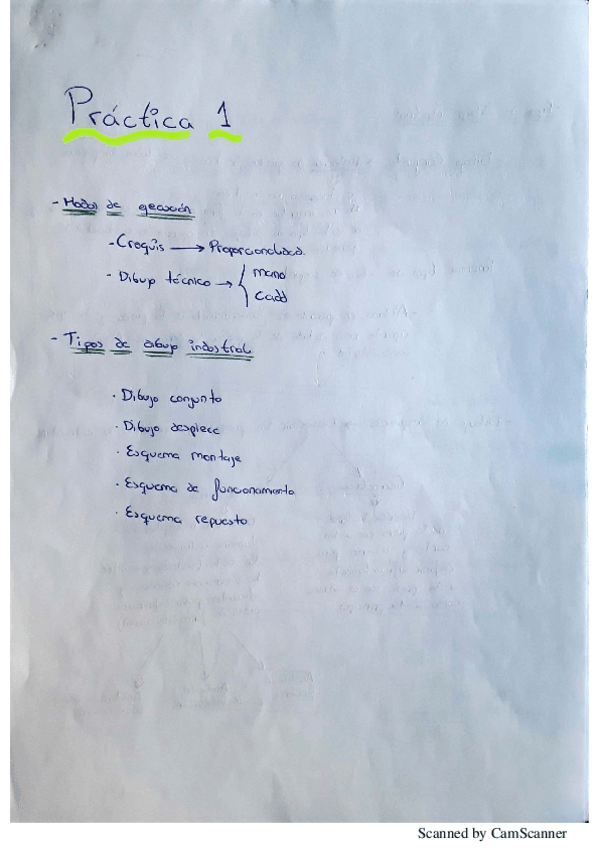 Práctica 1
- Modos de ejecución
- Croquis → Proporcionalidad.
- Dibujo técnico → { mano
Cadd
- Tipos de dibujo industrial
· Dibujo conjunto
· Dibujo despiece
· Esquema montaje
· Esquema de funcionamiento
· Esquema repuesto
Scanned by CamScanner